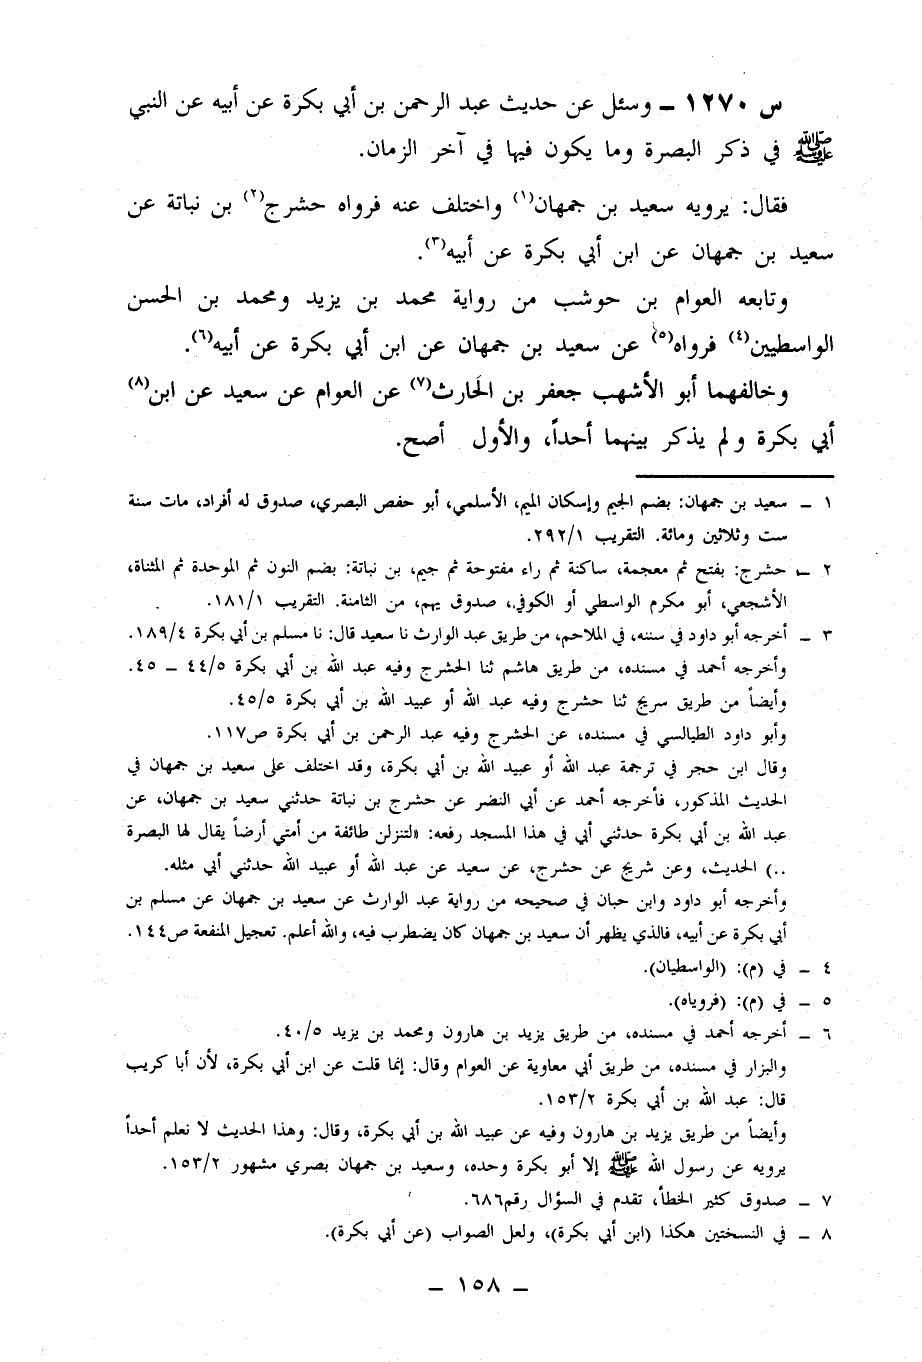 س ١٢٧٠ ـ وسئل عن حديث عبد الرحمن بن أبي بكرة عن أبيه عن النبي
ﷺ في ذكر البصرة وما يكون فيها في آخر الزمان.
فقال: يرويه سعيد بن جمهان(١) واختلف عنه فرواه حشرج(٢) بن نباتة عن
سعيد بن جمهان عن ابن أبي بكرة عن أبيه(٣).
وتابعه العوام بن حوشب من رواية محمد بن يزيد ومحمد بن الحسن
الواسطيين(٤) فرواه(٥) عن سعيد بن جمهان عن ابن أبي بكرة عن أبيه(٦).
وخالفهما أبو الأشهب جعفر بن الحارث(٧) عن العوام عن سعيد عن ابن(٨)
أبي بكرة ولم يذكر بينهما أحداً، والأول أصح.
١ ـ سعيد بن جمهان: بضم الجيم وإسكان الميم، الأسلمي، أبو حفص البصري، صدوق له أفراد، مات سنة
ست وثلاثين ومائة. التقريب ٢٩٢/١.
٢ ـ حشرج: بفتح ثم معجمة، ساكنة ثم راء مفتوحة ثم جيم، بن نباتة: بضم النون ثم الموحدة ثم المثناة،
الأشجعي، أبو مكرم الواسطي أو الكوفي، صدوق يهم، من الثامنة. التقريب ١٨١/١.
٣ ـ أخرجه أبو داود في سننه، في الملاحم، من طريق عبد الوارث نا سعيد قال: نا مسلم بن أبي بكرة ١٨٩/٤.
وأخرجه أحمد في مسنده، من طريق هاشم ثنا الحشرج وفيه عبد الله بن أبي بكرة ٤٤/٥ ـ ٤٥.
وأيضاً من طريق سريج ثنا حشرج وفيه عبد الله أو عبيد الله بن أبي بكرة ٤٥/٥.
وأبو داود الطيالسي في مسنده، عن الحشرج وفيه عبد الرحمن بن أبي بكرة ص١١٧.
وقال ابن حجر في ترجمة عبد الله أو عبيد الله بن أبي بكرة، وقد اختلف على سعيد بن جمهان في
الحديث المذكور، فأخرجه أحمد عن أبي النضر عن حشرج بن نباتة حدثني سعيد بن جمهان، عن
عبد الله بن أبي بكرة حدثني أبي في هذا المسجد رفعه: «لتنزلن طائفة من أمتي أرضاً يقال لها البصرة
..) الحديث، وعن شريح عن حشرج، عن سعيد عن عبد الله أو عبيد الله حدثني أبي مثله.
وأخرجه أبو داود وابن حبان في صحيحه من رواية عبد الوارث عن سعيد بن جمهان عن مسلم بن
أبي بكرة عن أبيه، فالذي يظهر أن سعيد بن جمهان كان يضطرب فيه، والله أعلم. تعجيل المنفعة ص١٤٤.
٤ ـ في (م): (الواسطيان).
٥ ـ في (م): (فروياه).
٦ ـ أخرجه أحمد في مسنده، من طريق يزيد بن هارون ومحمد بن يزيد ٤٠/٥.
والبزار في مسنده، من طريق أبي معاوية عن العوام وقال: إنما قلت عن ابن أبي بكرة، لأن أبا كريب
قال: عبد الله بن أبي بكرة ١٥٣/٢.
وأيضاً من طريق يزيد بن هارون وفيه عن عبيد الله بن أبي بكرة، وقال: وهذا الحديث لا نعلم أحداً
يرويه عن رسول الله ﷺ إلا أبو بكرة وحده، وسعيد بن جمهان بصري مشهور ١٥٣/٢.
٧ ـ صدوق كثير الخطأ، تقدم في السؤال رقم٦٨٦.
٨ ـ في النسختين هكذا (ابن أبي بكرة)، ولعل الصواب (عن أبي بكرة).
ـ ١٥٨ ـ